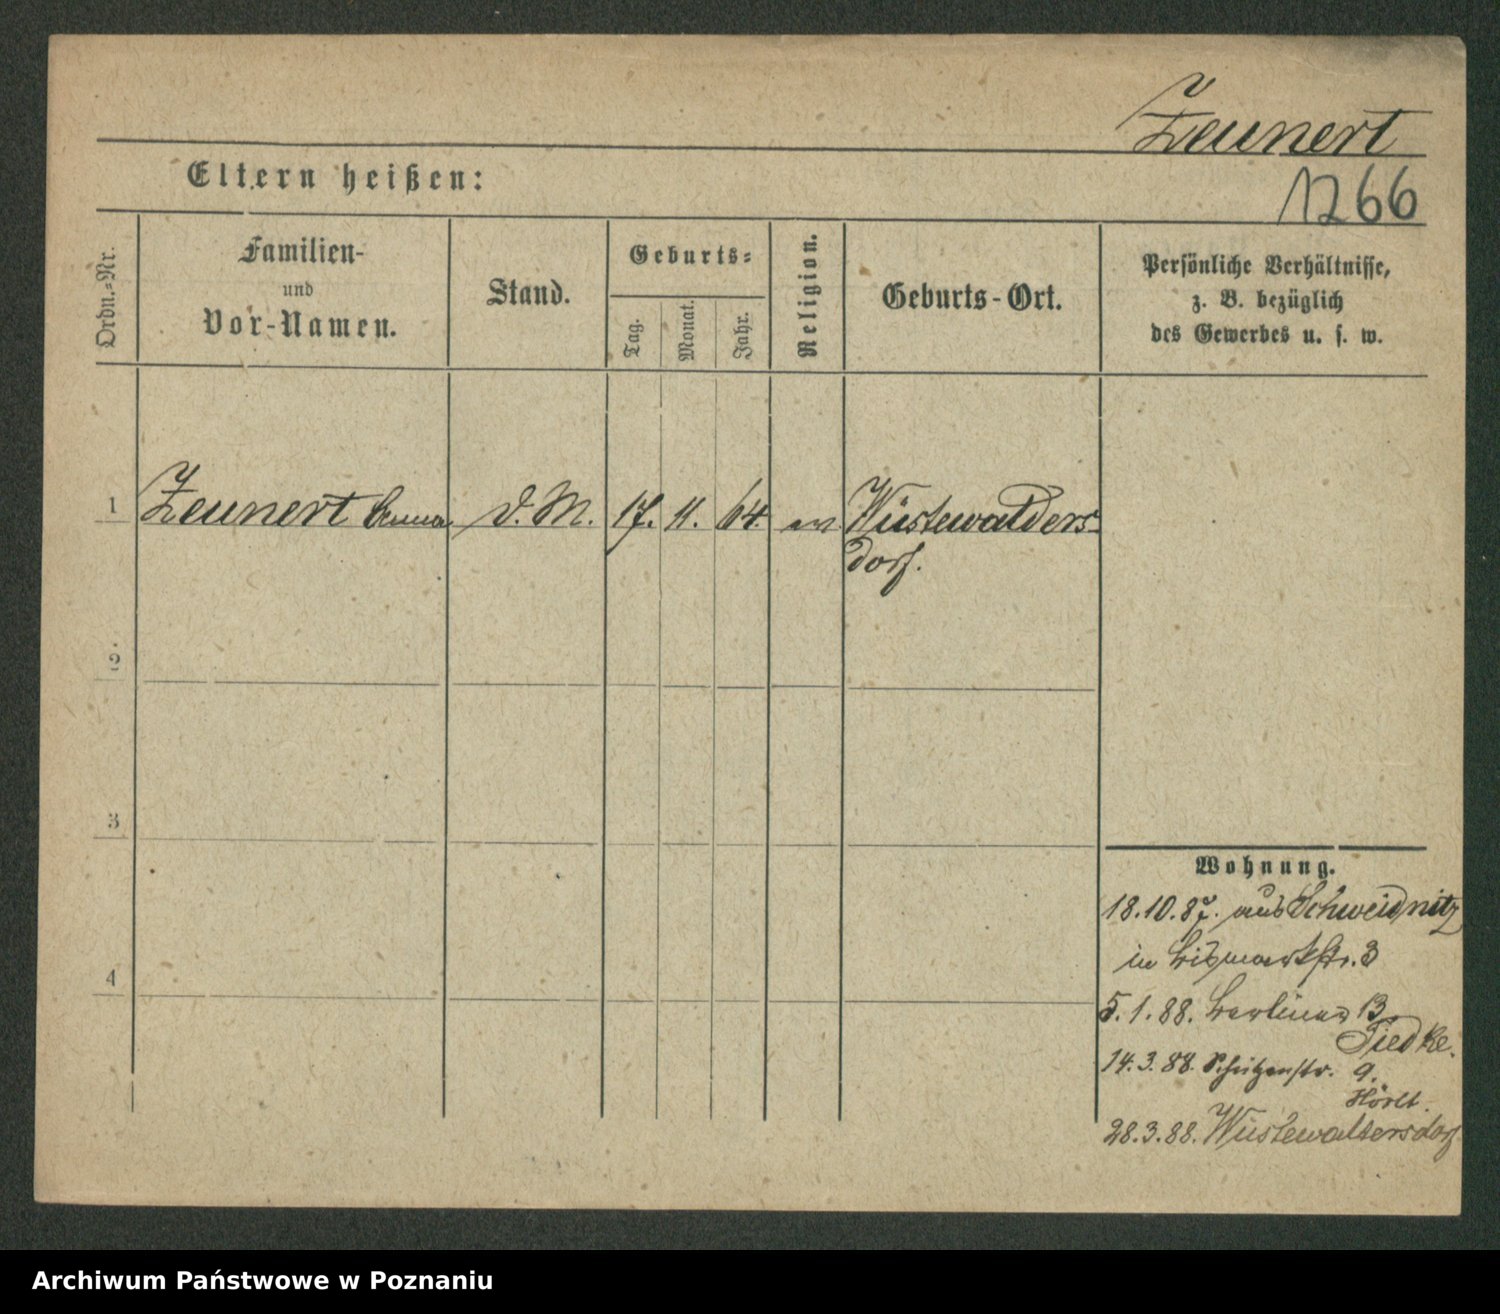 Zeunert
Eltern heißen:
1266
Ordn.-Nr.
Familien-
und
Vor-Namen.
Stand.
Geburts-
Tag.
Monat.
Jahr.
Religion.
Geburts-Ort.
Persönliche Verhältnisse,
z. B. bezüglich
des Gewerbes u. s. w.
1 Zeunert Anna D. M. 17. 11. 64. ev Wüstewalders-
dorf.
2
3
4
Wohnung.
18.10.87. aus Schweidnitz
in Bismarkstr. 3
5.1.88. Berliner 13
Tiedke.
14.3.88. Schützenstr. 9.
28.3.88. Wüstewaltersdorf
Archiwum Państwowe w Poznaniu